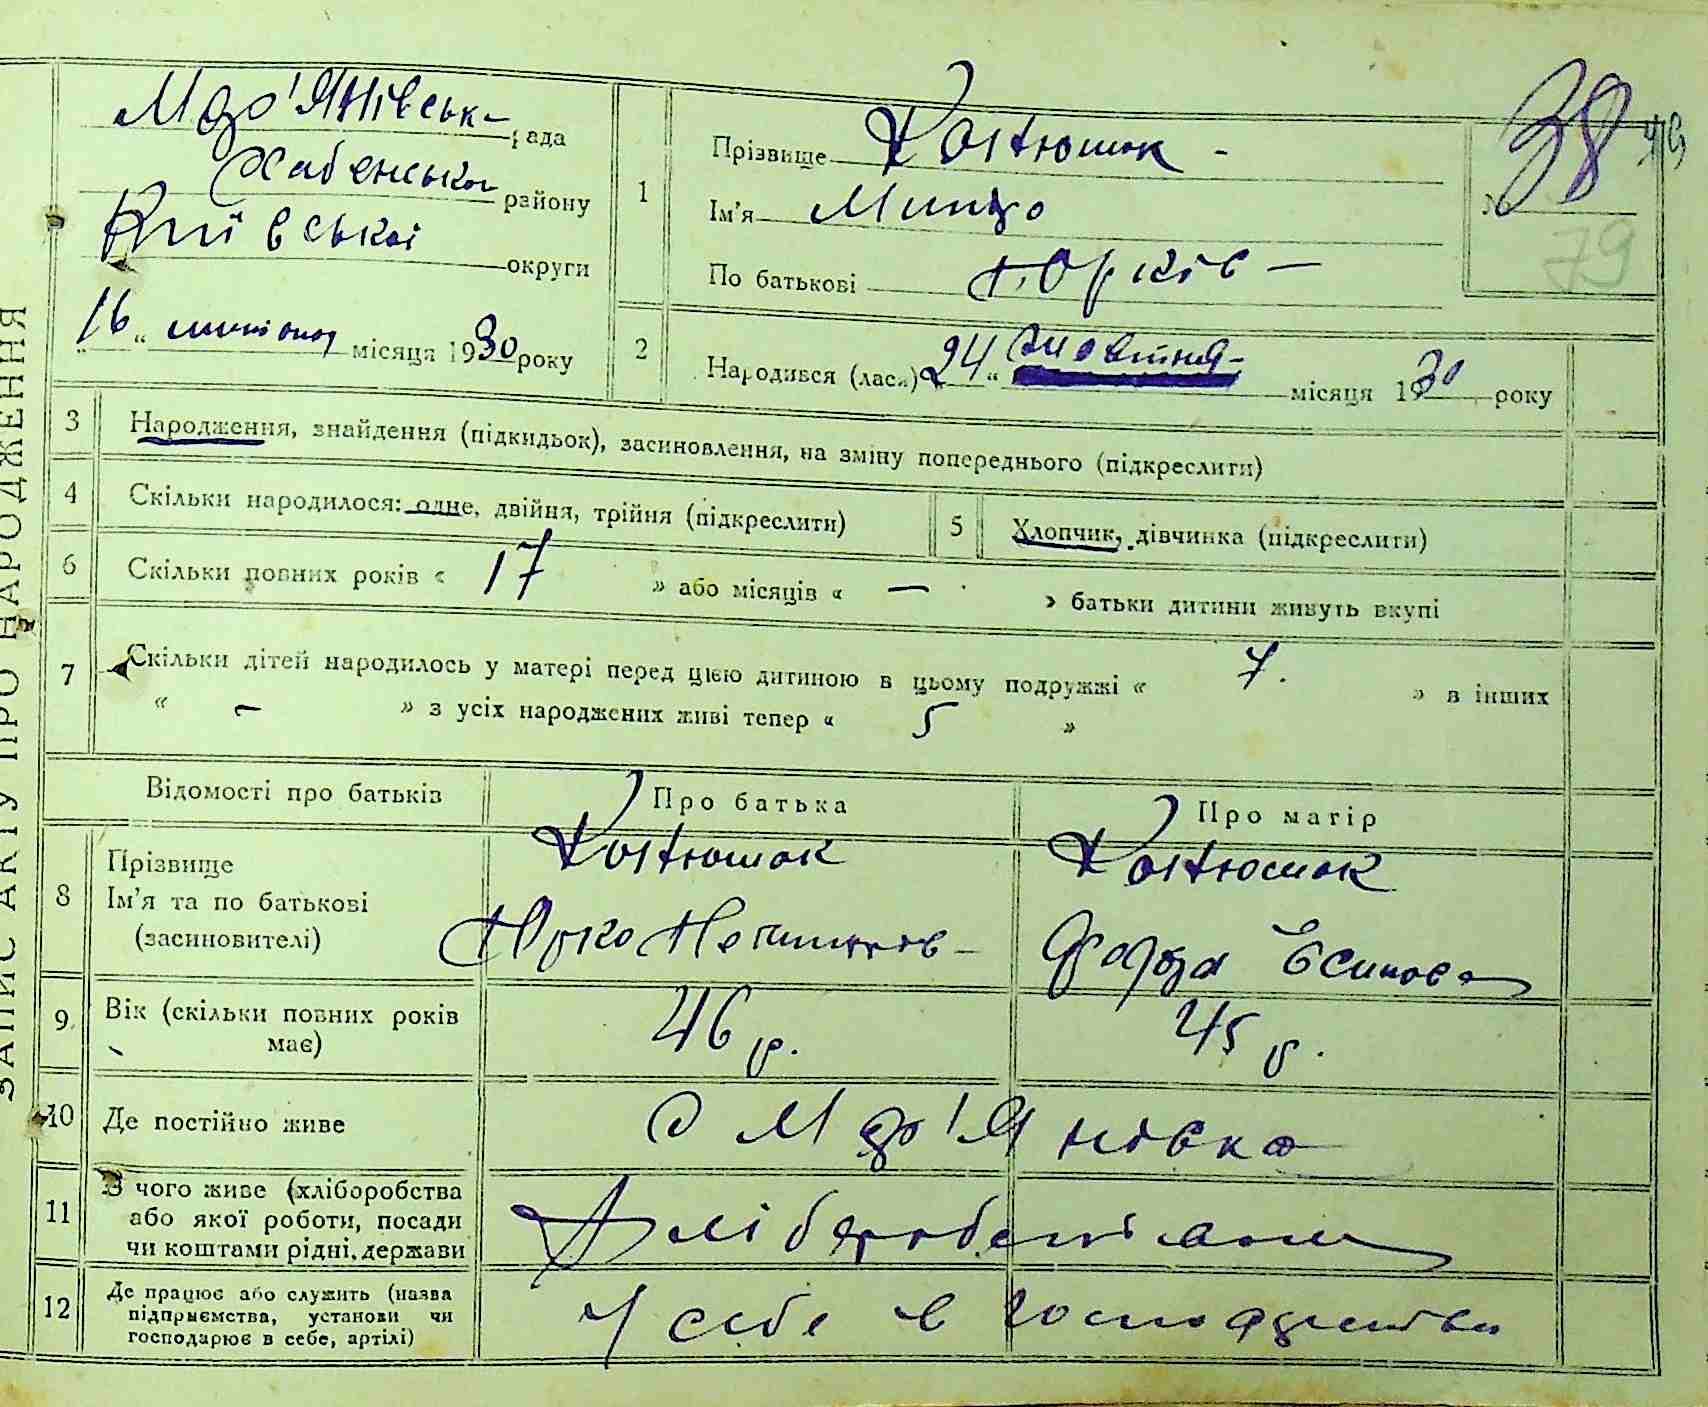 ЗАПИС АКТУ ПРО НАРОДЖЕННЯ
Мар'Янівськ- рада
Хабенської району
Київської округи
"16" листопад місяця 1930 року
1
Прізвище Костюшок -
Ім'я
По батькові Юрків -
№ 38
79
2
Народився (лася) "24" жовтня місяця 1930 року
3 Народження, знайдення (підкидьок), засиновлення, на зміну попереднього (підкреслити)
4 Скільки народилося: одне, двійня, трійня (підкреслити)
5 Хлопчик, дівчинка (підкреслити)
6 Скільки повних років « 17 » або місяців « — » батьки дитини живуть вкупі
7 Скільки дітей народилось у матері перед цією дитиною в цьому подружжі « 7. » в інших
« - » з усіх народжених живі тепер « 5 »
Відомості про батьків
Про батька
Про матір
8 Прізвище
Ім'я та по батькові
(засиновителі)
Костюшок
Юрко
Костюшок
Єсипова
9 Вік (скільки повних років
має)
46 р.
45 р.
10 Де постійно живе
с Мар'Янівка
11 З чого живе (хліборобства
або якої роботи, посади
чи коштами рідні, держави
Хліборобством
12 Де працює або служить (назва
підприємства, установи чи
господарює в себе, артілі)
У себе в господарстві